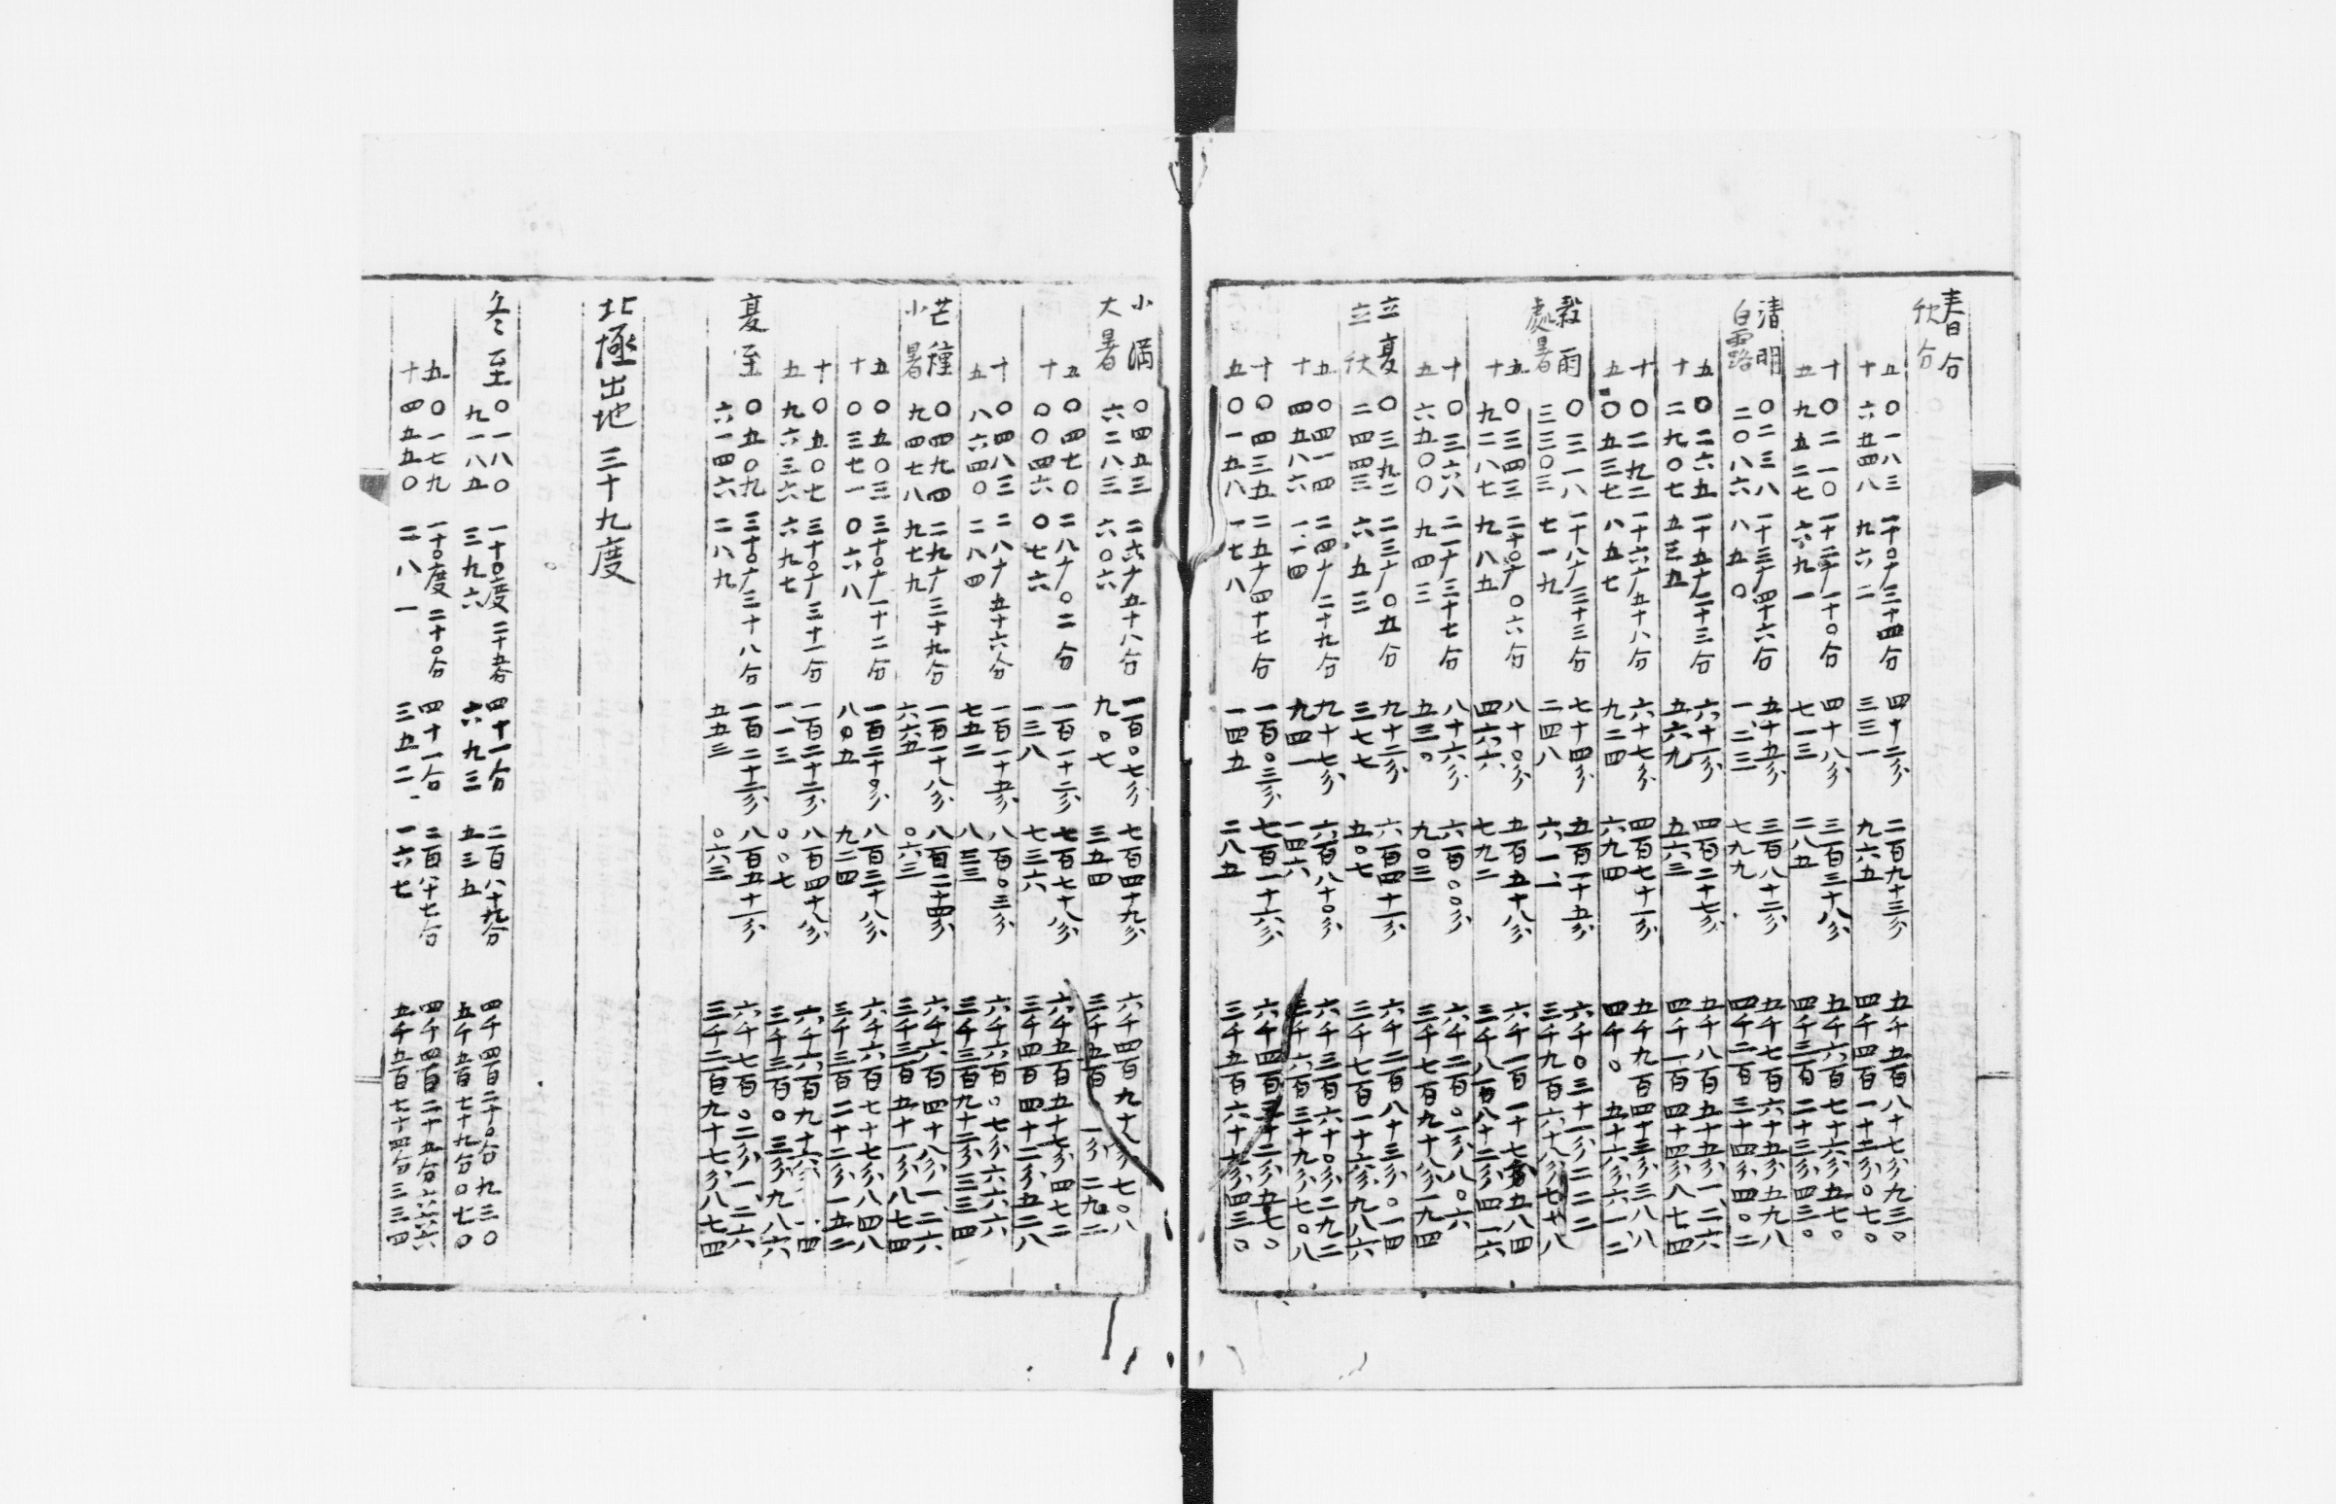 春分
秋分
五〇一八三 一十〇度三十四分 四十二分 二百九十三分 五千五百八十七分九三〇
十六五四八 九六二 三三一 九六五 四千四百一十二分〇七〇
十〇二一〇 一十二度一十〇分 四十八分 三百三十八分 五千六百七十六分五七〇
五九五二七 六九一 七一三 二八五 四千三百二十三分四三〇
清明〇二三八 一十三度四十六分 五十五分 三百八十二分 五千七百六十五分五九八
白露二〇八六 八五〇 一二三 七九九 四千二百三十四分四〇二
五〇二六五 一十五度二十三分 六十一分 四百二十七分 五千八百五十五分一二六
十二九〇七 五三五 五六九 五六三 四千一百四十四分八七四
十〇二九二 一十六度五十八分 六十七分 四百七十一分 五千九百四十三分三八八
五〇五三七 八五七 九二四 六九四 四千〇五十六分六一二
穀雨〇三一八 一十八度三十三分 七十四分 五百一十五分 六千〇三十一分二二二
處暑三三〇三 七一九 二四八 六一一 三千九百六十八分七七八
五〇三四三 二十〇度〇六分 八十〇分 五百五十八分 六千一百一十七分五八四
十九二八七 九八五 四六六 七九二 三千八百八十二分四一六
十〇三六八 二一十度三十七分 八十六分 六百〇〇分 六千二百〇一分八〇六
五六五〇〇 九四三 五三〇 九〇三 三千七百九十八分一九四
立夏〇三九二 二三度〇五分 九十二分 六百四十一分 六千二百八十三分〇一四
立秋二四四三 六五三 三七七 五〇七 三千七百一十六分九八六
五〇四一四 二四度二十九分 九十七分 六百八十〇分 六千三百六十〇分二九二
十四五八六 一一四 九四一 一四六 三千六百三十九分七〇八
十〇四三五 二五度四十七分 一百〇三分 七百一十六分 六千四百三十二分五七〇
五〇一五八 一七八 一四五 二八五 三千五百六十七分四三〇
小滿〇四五三 二六度五十八分 一百〇七分 七百四十九分 六千四百九十八分七〇八
大暑六二八三 六〇六 九〇七 三五四 三千五百 一分二九二
五〇四七〇 二八度〇二分 一百一十二分 七百七十八分 六千五百五十七分四七二
十〇〇四六 〇七六 一三八 七三六 三千四百四十二分五二八
十〇四八三 二八度五十六分 一百一十五分 八百〇三分 六千六百〇七分六六六
五八六四〇 二八四 七五二 八三三 三千三百九十二分三三四
芒種〇四九四 二九度三十九分 一百一十八分 八百二十四分 六千六百四十八分一二六
小暑九四七八 九七九 六六五 〇六三 三千三百五十一分八七四
五〇五〇三 三十〇度一十二分 一百二十〇分 八百三十八分 六千六百七十七分八四八
十〇三七一 〇六八 八〇五 九二四 三千三百二十二分一五二
十〇五〇七 三十〇度三十一分 一百二十二分 八百四十八分 六千六百九十六分 一四
五九六三六 六九七 一一三 〇〇七 三千三百〇三分九八六
夏至〇五〇九 三十〇度三十八分 一百二十二分 八百五十一分 六千七百〇二分一二六
六一四六 二八九 五五三 〇六三 三千二百九十七分八七四
北極出地三十九度
冬至〇一八〇 一十〇度二十五分 四十一分 二百八十九分 四千四百二十〇分九三〇
九一八五 三九六 六九三 五三五 五千五百七十九分〇七〇
五〇一七九 一十〇度二十〇分 四十一分 二百八十七分 四千四百二十五分六六六
十四五五〇 二八一 三五二 一六七 五千五百七十四分三三四